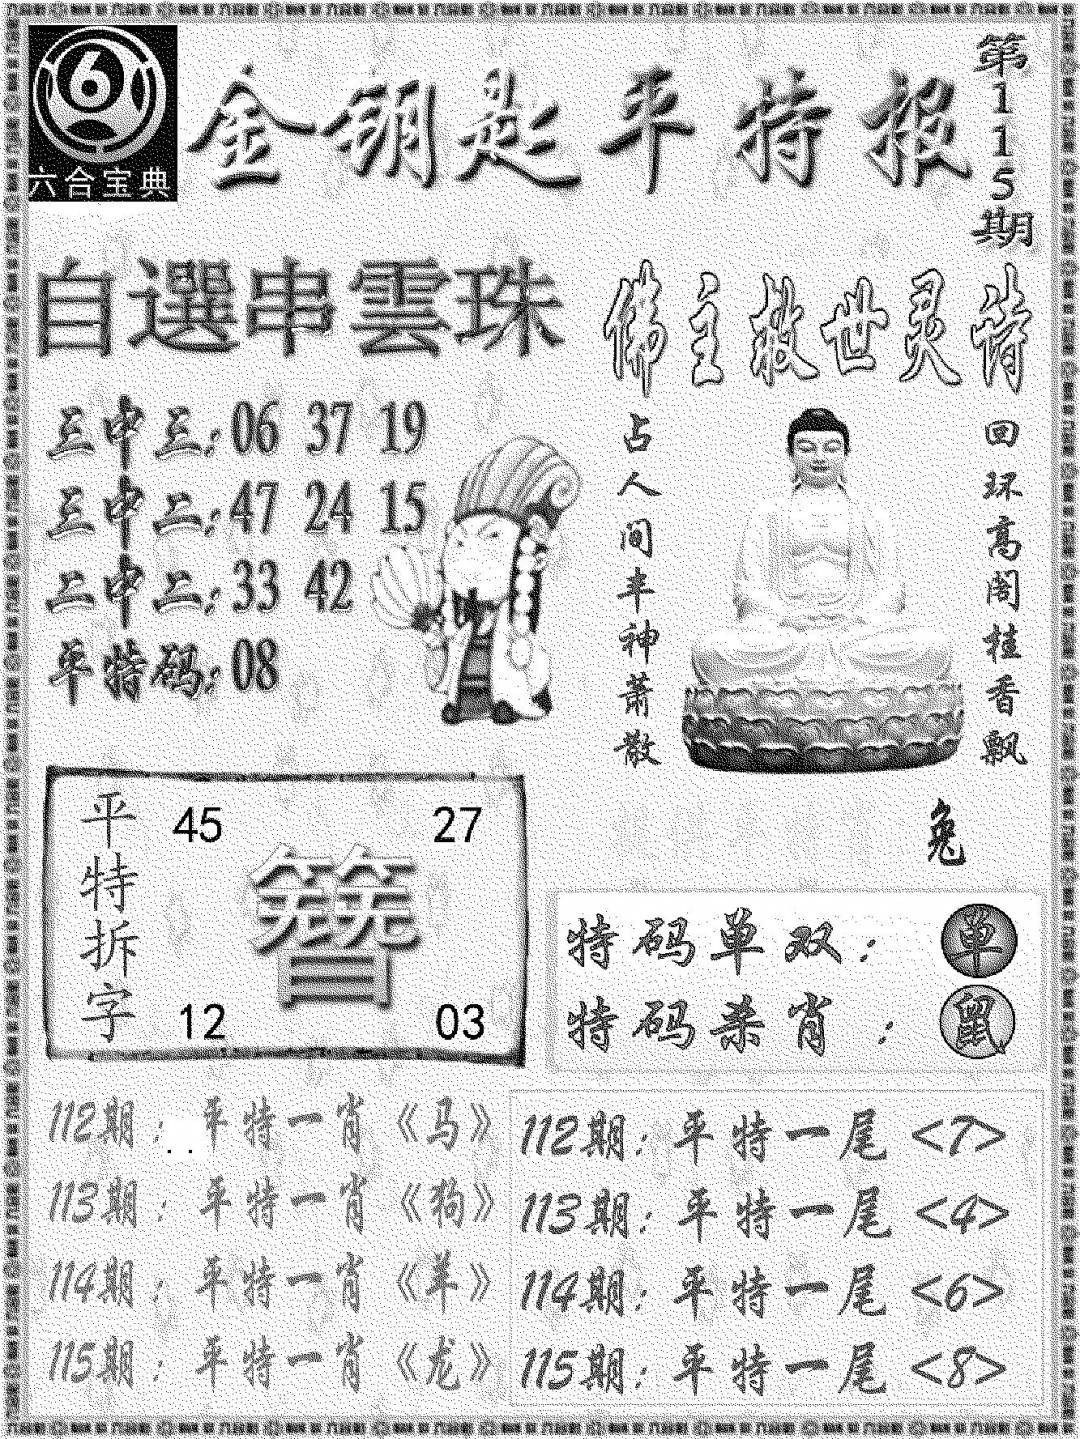 6
六合宝典
金钥匙平特报
第115期
自選串雲珠
三中三:06 37 19
三中二:47 24 15
二中二:33 42
平特码:08
佛主救世灵诗
回环高阁桂香飘
占人间丰神萧散
兔
平特拆字
45 27
簪
12 03
特码单双: 单
特码杀肖: 鼠
112期: 平特一肖《马》
113期: 平特一肖《狗》
114期: 平特一肖《羊》
115期: 平特一肖《龙》
112期: 平特一尾<7>
113期: 平特一尾<4>
114期: 平特一尾<6>
115期: 平特一尾<8>